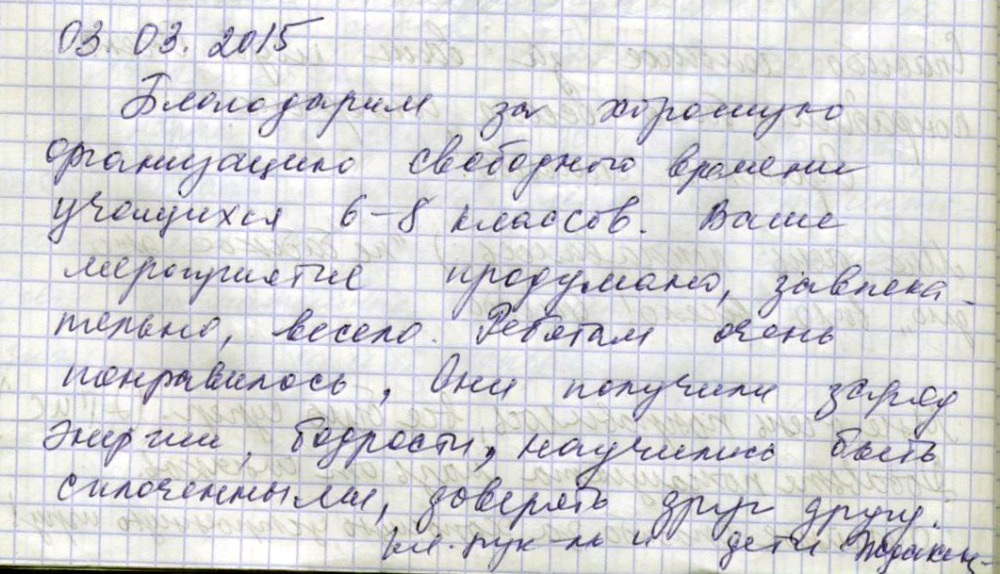 03.03.2015
Благодарим за хорошую
организацию свободного времени
учащихся 6-8 классов. Ваше
мероприятие продумано, завлека-
тельно, весело. Ребятам очень
понравилось, Они получили заряд
энергии, бодрости, научились быть
сплоченными, доверять друг другу.
кл. рук-ль и дети